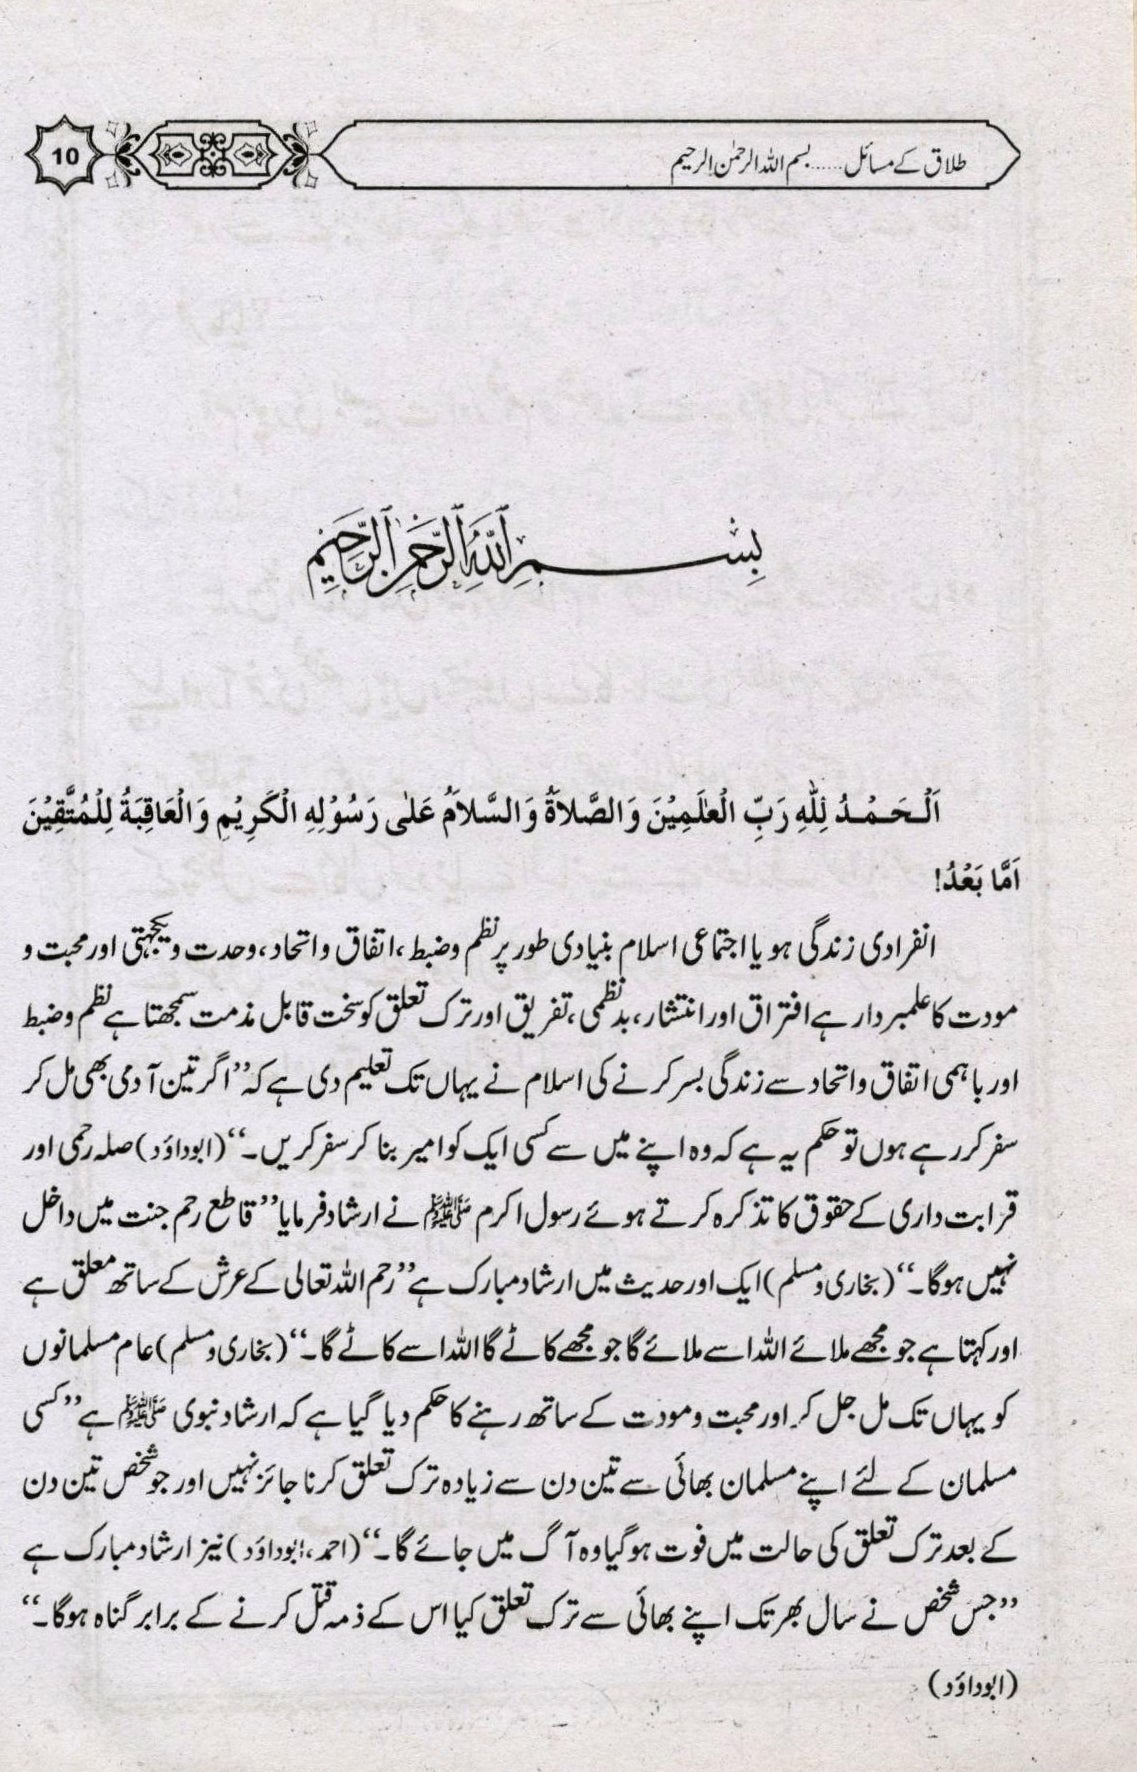 طلاق کے مسائل......بسم اللہ الرحمٰن الرحیم
10
بِسْمِ اللّٰهِ الرَّحْمٰنِ الرَّحِيْمِ
اَلْـحَـمْـدُ لِلّٰهِ رَبِّ الْعٰلَمِيْنَ وَالصَّلاَةُ وَالسَّلاَمُ عَلٰى رَسُوْلِهِ الْكَرِيْمِ وَالْعَاقِبَةُ لِلْمُتَّقِيْنَ
اَمَّا بَعْدُ!
انفرادی زندگی ہو یا اجتماعی اسلام بنیادی طور پر نظم وضبط، اتفاق واتحاد، وحدت ویکجہتی اور محبت و
مودت کا علمبردار ہے افتراق اور انتشار، بدنظمی، تفریق اور ترک تعلق کو سخت قابل مذمت سمجھتا ہے نظم وضبط
اور باہمی اتفاق واتحاد سے زندگی بسر کرنے کی اسلام نے یہاں تک تعلیم دی ہے کہ ’’اگر تین آدمی بھی مل کر
سفر کر رہے ہوں تو حکم یہ ہے کہ وہ اپنے میں سے کسی ایک کو امیر بنا کر سفر کریں۔‘‘ (ابوداؤد) صلہ رحمی اور
قرابت داری کے حقوق کا تذکرہ کرتے ہوئے رسول اکرم ﷺ نے ارشاد فرمایا ’’قاطع رحم جنت میں داخل
نہیں ہوگا۔‘‘ (بخاری ومسلم) ایک اور حدیث میں ارشاد مبارک ہے ’’رحم اللہ تعالی کے عرش کے ساتھ معلق ہے
اور کہتا ہے جو مجھے ملائے اللہ اسے ملائے گا جو مجھے کاٹے گا اللہ اسے کاٹے گا۔‘‘ (بخاری ومسلم) عام مسلمانوں
کو یہاں تک مل جل کر اور محبت ومودت کے ساتھ رہنے کا حکم دیا گیا ہے کہ ارشاد نبوی ﷺ ہے ’’کسی
مسلمان کے لئے اپنے مسلمان بھائی سے تین دن سے زیادہ ترک تعلق کرنا جائز نہیں اور جو شخص تین دن
کے بعد ترک تعلق کی حالت میں فوت ہوگیا وہ آگ میں جائے گا۔‘‘ (احمد، ابوداؤد) نیز ارشاد مبارک ہے
’’جس شخص نے سال بھر تک اپنے بھائی سے ترک تعلق کیا اس کے ذمہ قتل کرنے کے برابر گناہ ہوگا۔‘‘
(ابوداؤد)